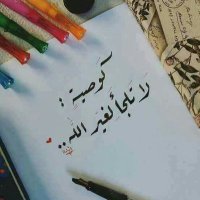 كوصية :
لا تلجأ لغير الله..